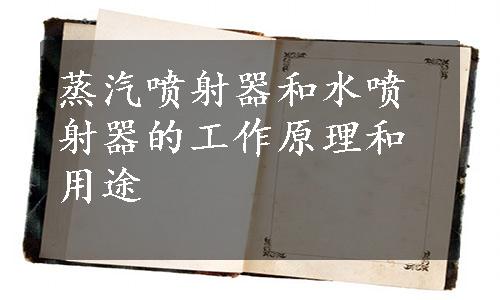 蒸汽喷射器和水喷
射器的工作原理和
用途